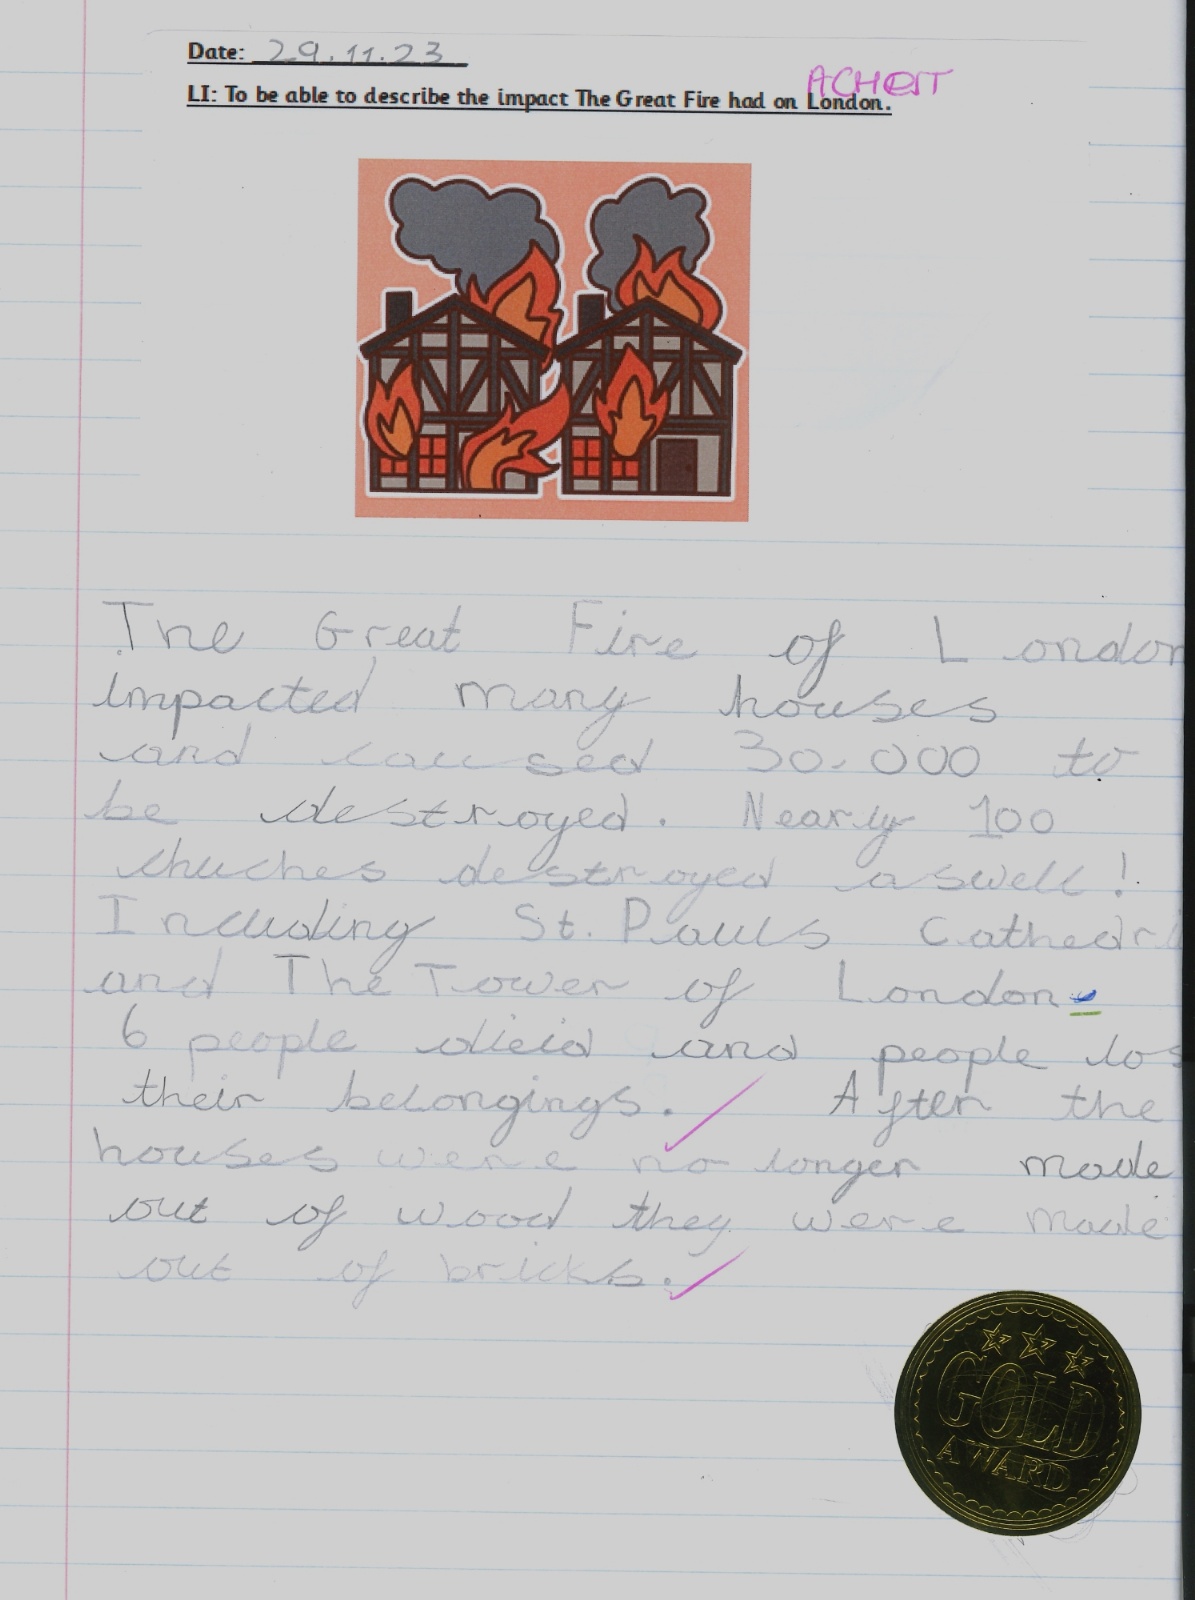 Date: 29.11.23
ACH
LI: To be able to describe the impact The Great Fire had on London.
The Great Fire of London
impacted many houses
and caused 30.000 to
be destroyed. Nearly 100
chuches destroyed aswell!
Including St. Pauls Cathedr
and The Tower of London.
6 people dieid and people los
their belongings. After the
houses were no longer made
out of wood they were made
out of bricks.
GOLD
AWARD